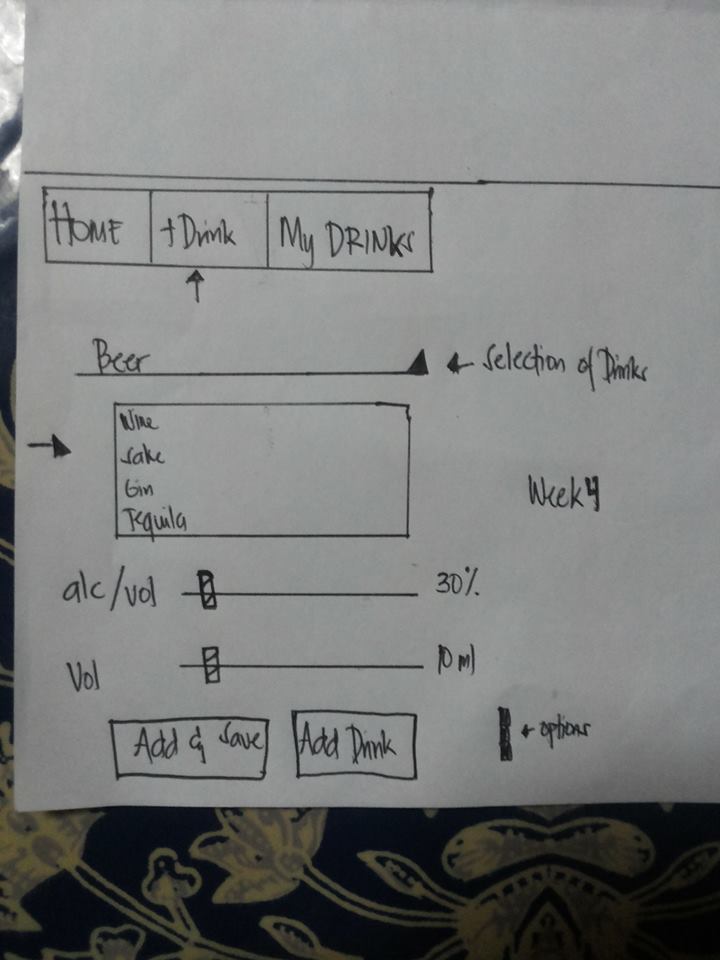 HOME +Drink My DRINKS
Beer ← Selection of Drinks
Wine
Sake
Gin
Tequila
Week 4
alc/vol 30%
Vol 10 ml
Add & Save Add Drink ← options